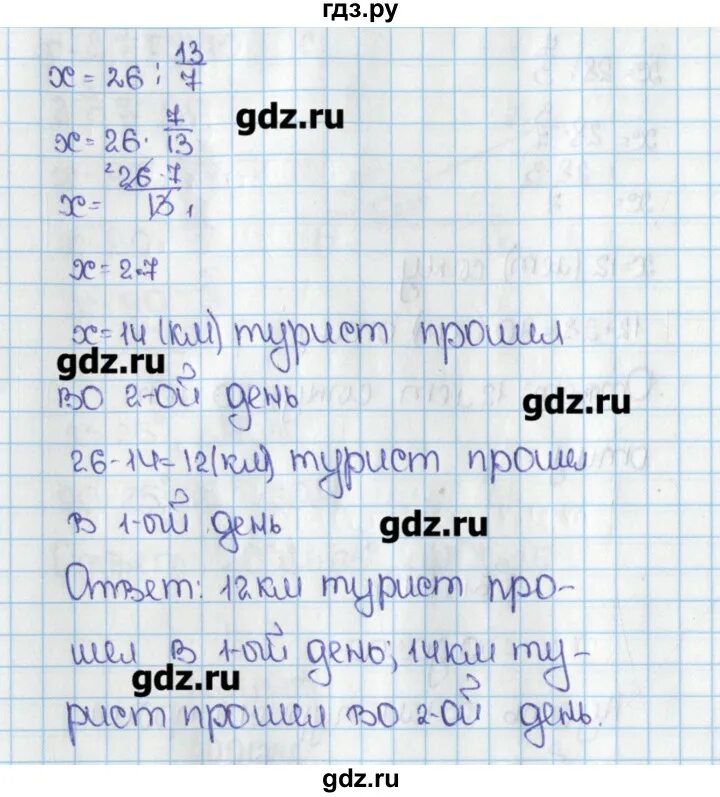 гдз.ру
x = 26 : 13/7
gdz.ru
x = 26 · 7/13
x = ²26·7/13 ₁
x = 2·7
x=14 (км) турист прошел
gdz.ru
во 2-ой день
gdz.ru
26-14=12(км) турист прошел
в 1-ый день
gdz.ru
Ответ: 12км турист про-
шел в 1-ый день; 14км ту-
gdz.ru
рист прошел во 2-ой день.
gdz.ru